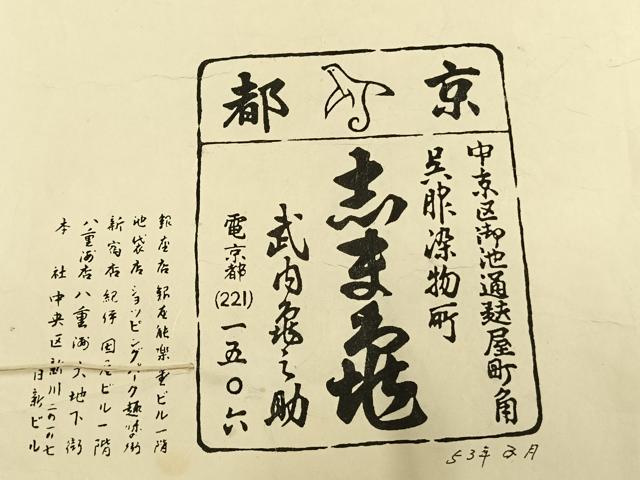 京都
中京区御池通麩屋町角
呉服染物所
志ま亀
武内亀之助
電京都(221)一五〇六
銀座店 銀座能楽堂ビル一階
池袋店 ショッピングパーク趣味の街
新宿店 紀伊國屋ビル一階
八重洲店 八重洲大地下街
本社 中央区新川二の一の七
日新ビル
53年5月